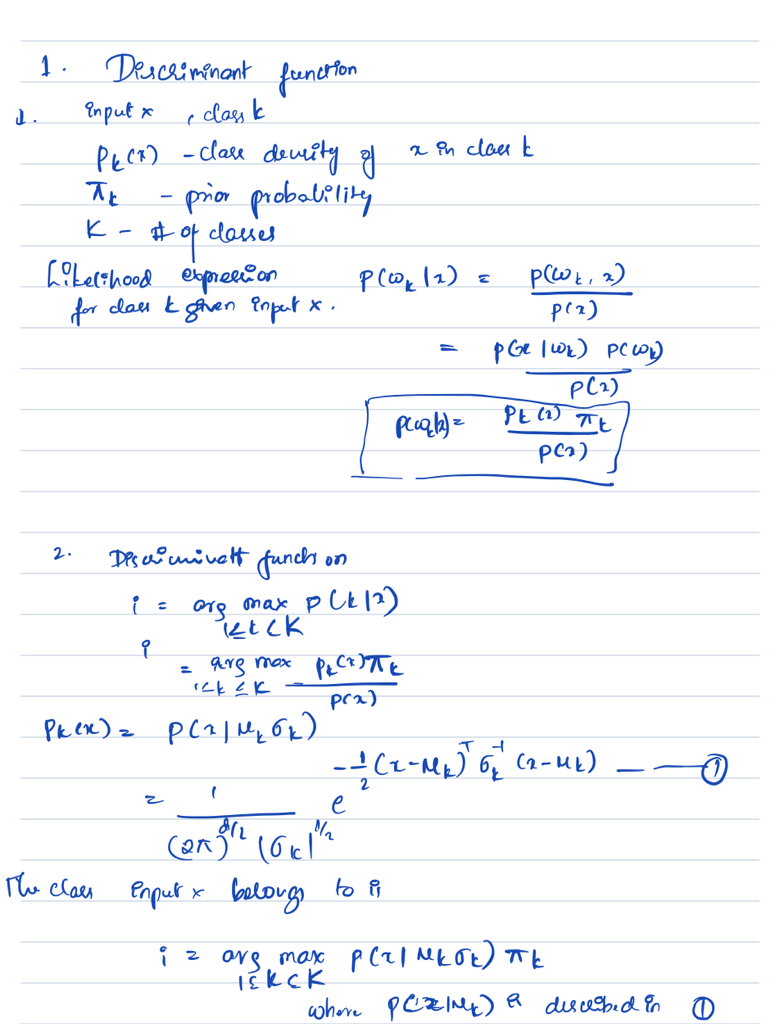 1. Discriminant function
1. input x , class k
Pk(x) - class density of x in class k
πk - prior probability
K - # of classes
Likelihood expression P(ωk|x) = P(ωk, x) / P(x)
for class k given input x.
= P(x|ωk) P(ωk) / P(x)
P(ωk|x) = Pk(x) πk / P(x)
2. Discriminant function
i = arg max P(k|x)
1≤k<K
i
= arg max Pk(x)πk / P(x)
1<k≤K
Pk(x) = P(x|μk σk)
= 1 / ((2π)^(d/2) |σk|^(1/2)) e^(-1/2 (x-μk)^T σk^-1 (x-μk)) — ①
The class input x belongs to is
i = arg max P(x|μk σk) πk
1≤k<K
where P(x|μk) is described in ①